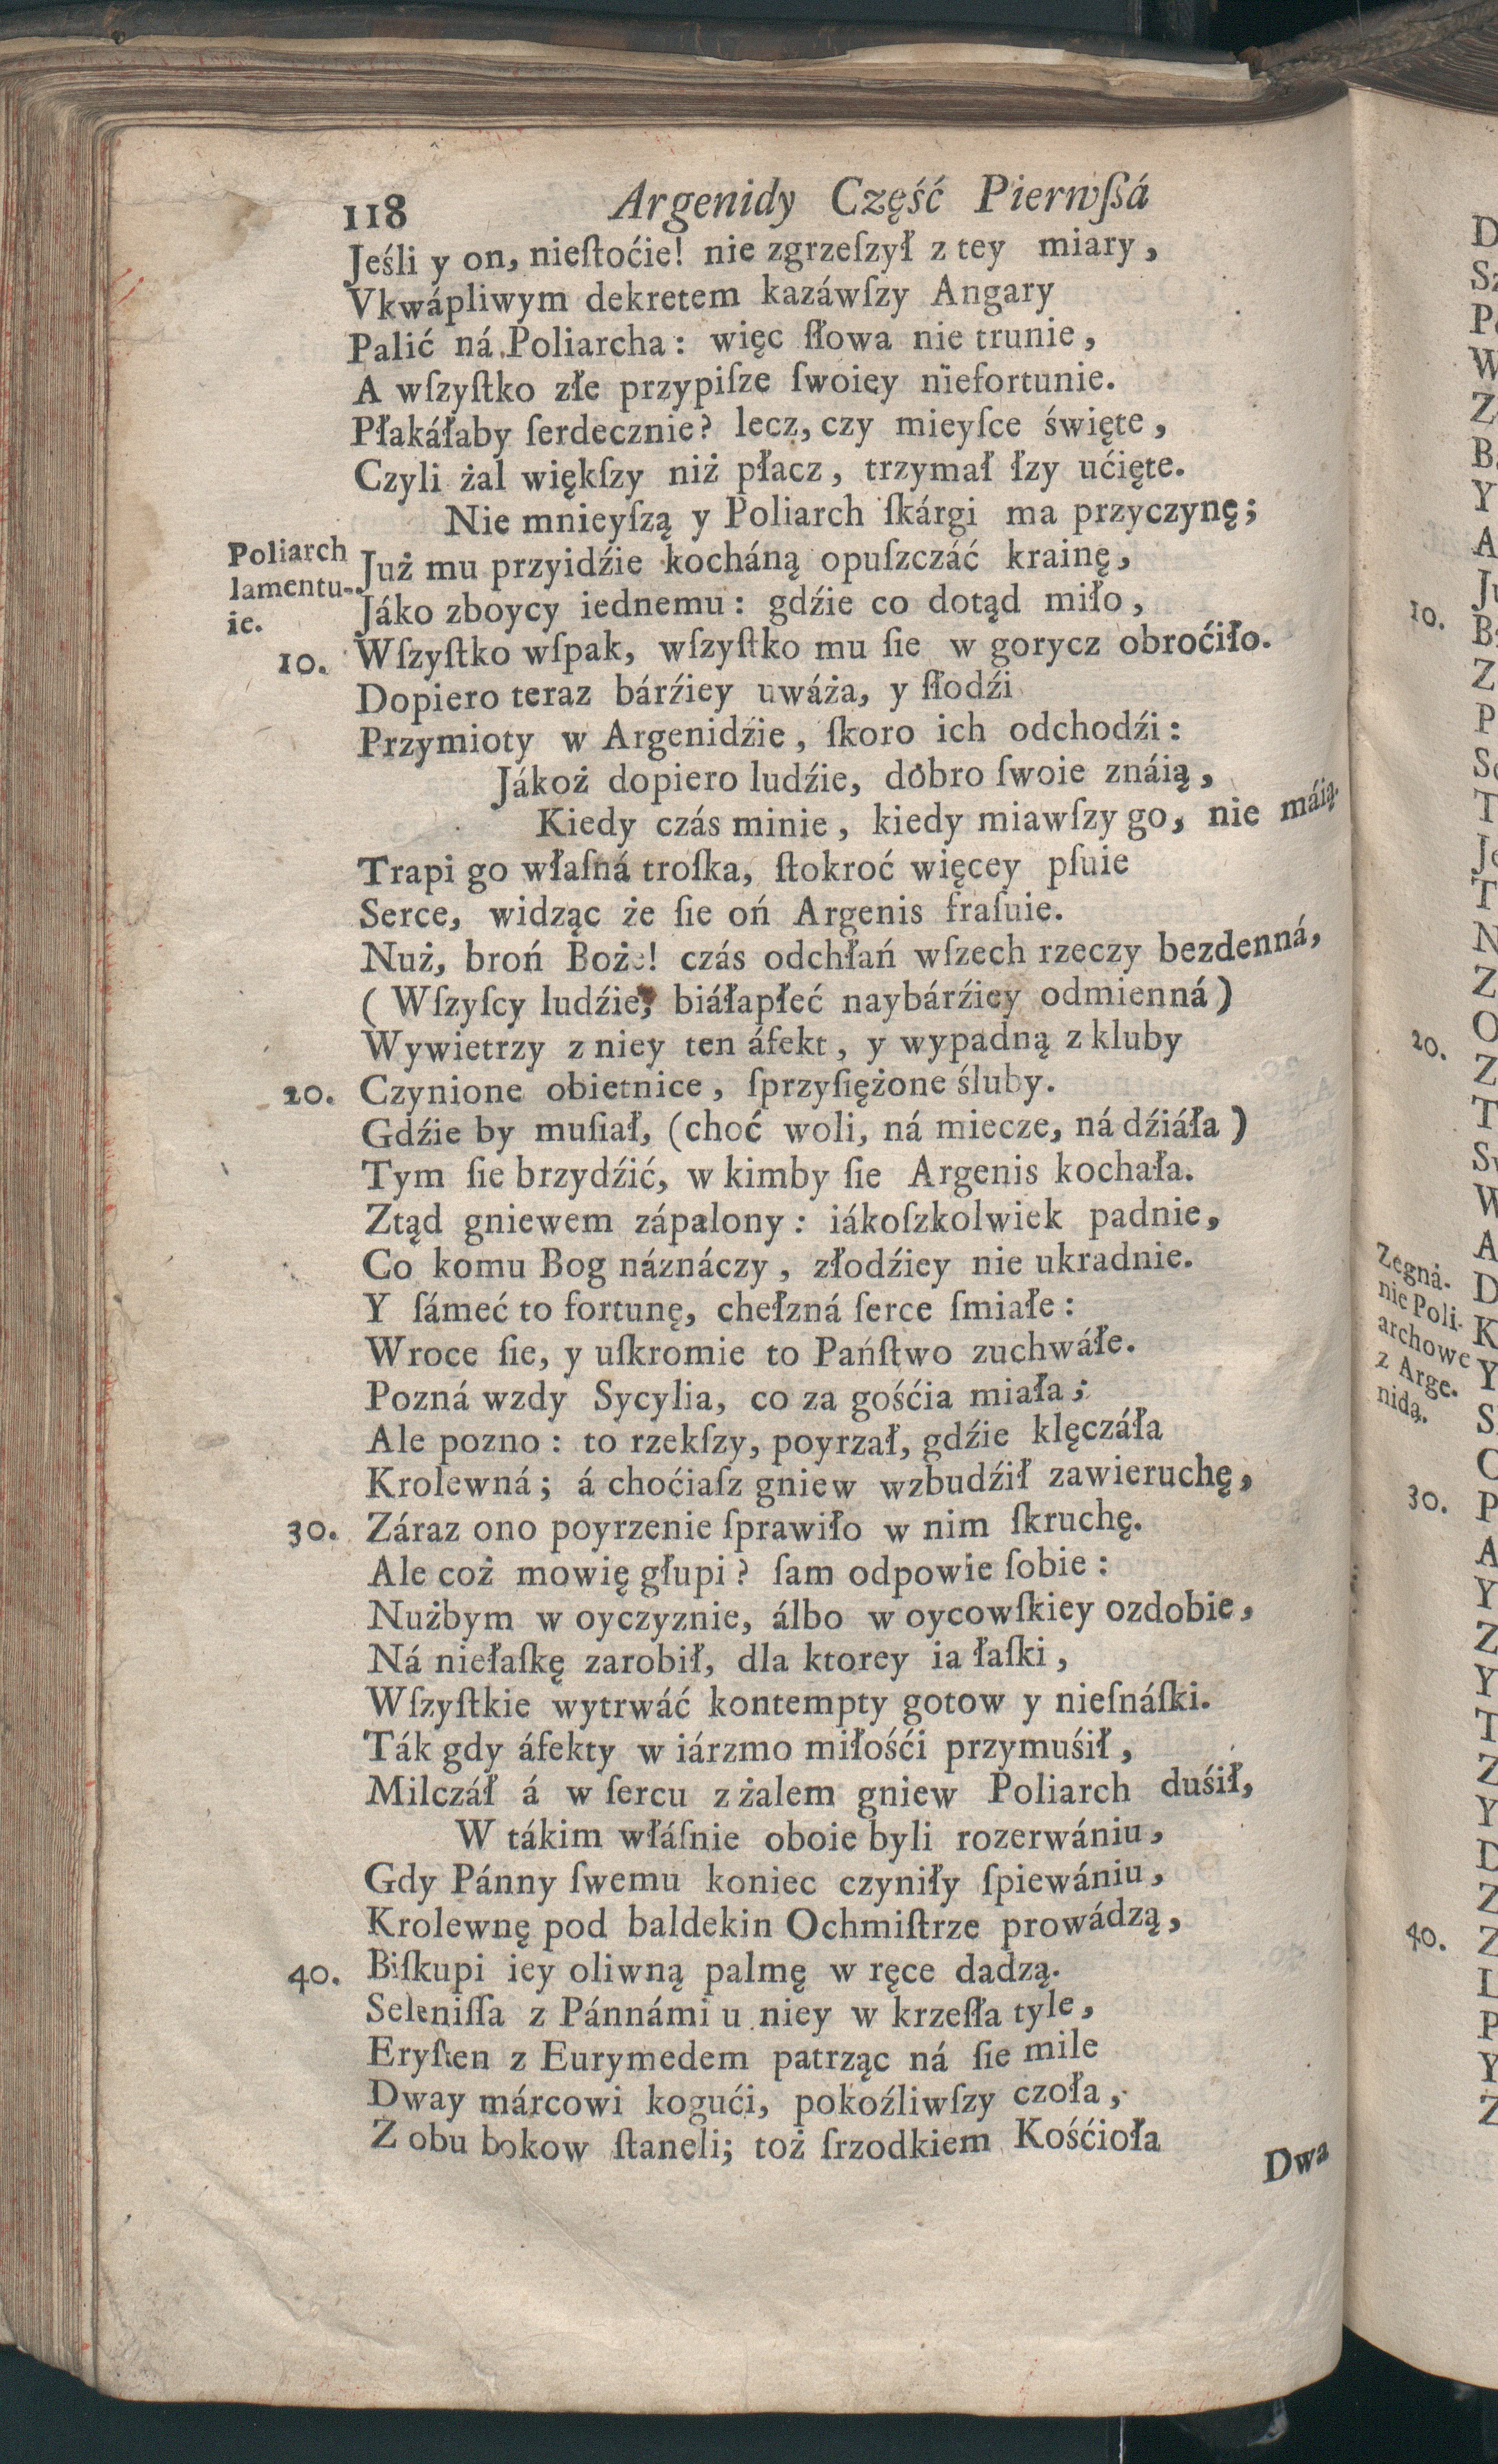 118 Argenidy Część Pierwſßá
Jeśli y on, nieſtoćie! nie zgrzeſzył z tey miary,
Vkwápliwym dekretem kazáwſzy Angary
Palić ná Poliarcha: więc ſłowa nie trunie,
A wſzyſtko złe przypiſze ſwoiey niefortunie.
Płakáłaby ſerdecznie? lecz, czy mieyſce święte,
Czyli żal więkſzy niż płacz, trzymał łzy ućięte.
Nie mnieyſzą y Poliarch ſkárgi ma przyczynę;
Poliarch lamentu-ie.
Już mu przyidźie kocháną opuſzczáć krainę,
Jáko zboycy iednemu: gdźie co dotąd miło,
10. Wſzyſtko wſpak, wſzyſtko mu ſie w gorycz obroćiło.
Dopiero teraz bárźiey uwáża, y ſłodźi
Przymioty w Argenidźie, ſkoro ich odchodźi:
Jákoż dopiero ludźie, dobro ſwoie znáią,
Kiedy czás minie, kiedy miawſzy go, nie máią.
Trapi go właſná troſka, ſtokroć więcey pſuie
Serce, widząc że ſie oń Argenis fraſuie.
Nuż, broń Boże! czás odchłań wſzech rzeczy bezdenná,
(Wſzyſcy ludźie, biáłapłeć naybárźiey odmienná)
Wywietrzy z niey ten áfekt, y wypadną z kluby
20. Czynione obietnice, ſprzyſiężone śluby.
Gdźie by muſiał, (choć woli, ná miecze, ná dźiáła)
Tym ſie brzydźić, w kimby ſie Argenis kochała.
Ztąd gniewem zápalony: iákoſzkolwiek padnie,
Co komu Bog náznáczy, złodźiey nie ukradnie.
Y ſámeć to fortunę, chełzná ſerce ſmiałe:
Wroce ſie, y uſkromie to Pańſtwo zuchwáłe.
Pozná wzdy Sycylia, co za gośćia miała;
Ale pozno: to rzekſzy, poyrzał, gdźie klęczáła
Krolewná; á choćiaſz gniew wzbudźił zawieruchę,
30. Záraz ono poyrzenie ſprawiło w nim ſkruchę.
Ale coż mowię głupi? ſam odpowie ſobie:
Nużbym w oyczyznie, álbo w oycowſkiey ozdobie,
Ná niełaſkę zarobił, dla ktorey ia łaſki,
Wſzyſtkie wytrwáć kontempty gotow y nieſnáſki.
Ták gdy áfekty w iárzmo miłośći przymuśił,
Milczáł á w ſercu z żalem gniew Poliarch duśił,
W tákim właſnie oboie byli rozerwániu,
Gdy Pánny ſwemu koniec czyniły ſpiewániu,
Krolewnę pod baldekin Ochmiſtrze prowádzą,
40. Biſkupi iey oliwną palmę w ręce dadzą.
Seleniſſa z Pánnámi u niey w krzeſła tyle,
Eryſten z Eurymedem patrząc ná ſie mile
Dway márcowi kogući, pokoźliwſzy czoła,
Z obu bokow ſtaneli; toż ſrzodkiem Kośćioła
Dwa
10.
20.
Zegná-
nie Poli-
archowe
z Arge-
nidą.
30.
40.